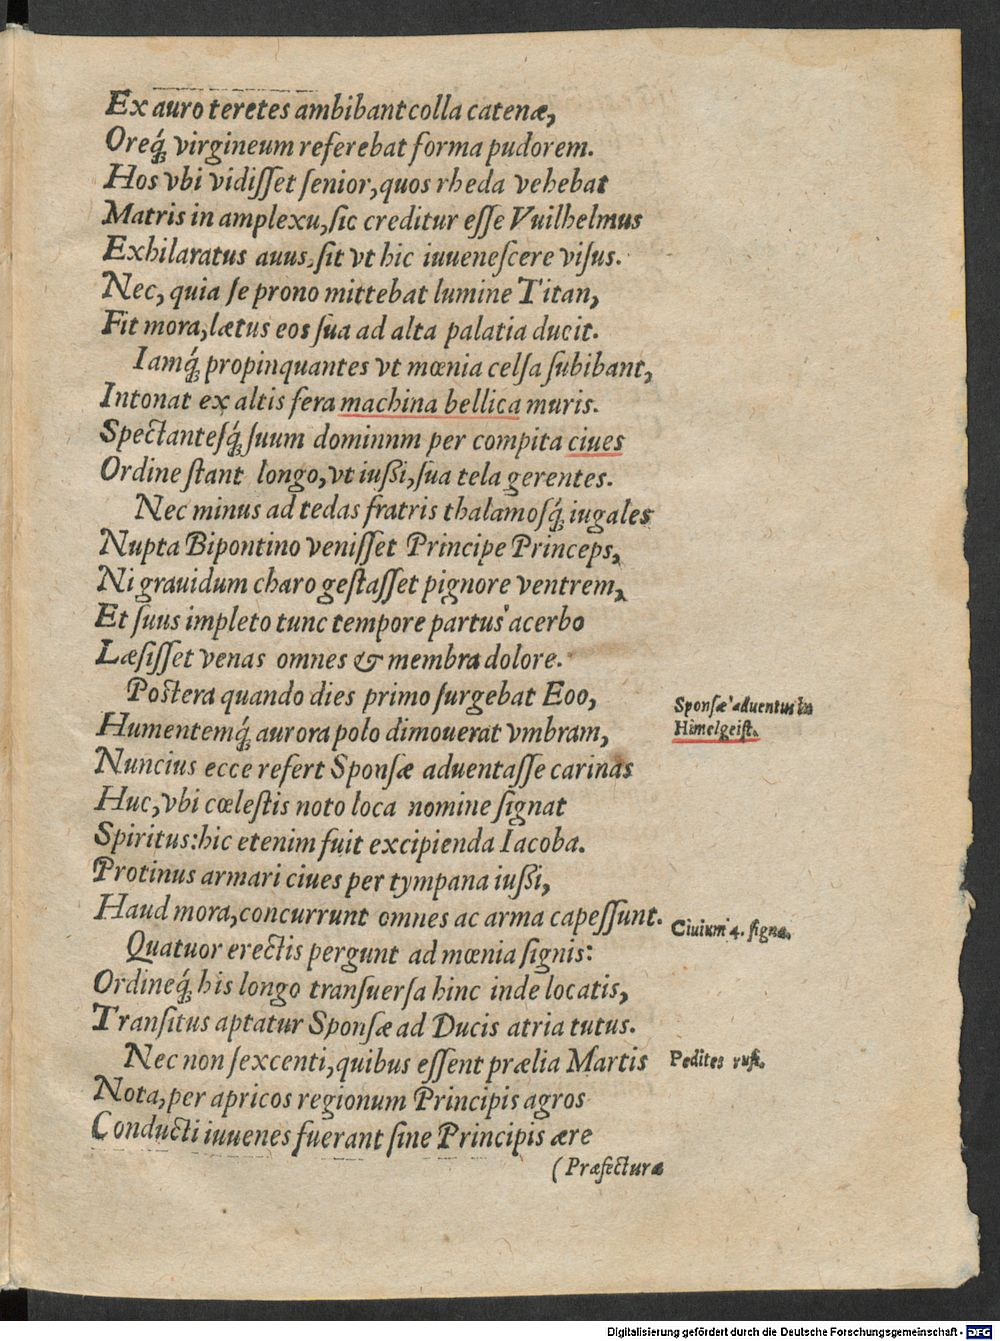 Ex auro teretes ambibant colla catenæ,
Oreq́; virgineum referebat forma pudorem.
Hos vbi vidiſſet ſenior, quos rheda vehebat
Matris in amplexu, ſic creditur eſſe Vuilhelmus
Exhilaratus auus, ſit vt hic iuueneſcere viſus.
Nec, quia ſe prono mittebat lumine Titan,
Fit mora, lætus eos ſua ad alta palatia ducit.
Iamq́; propinquantes vt mœnia celſa ſubibant,
Intonat ex altis fera machina bellica muris.
Spectanteſq́; ſuum dominnm per compita ciues
Ordine ſtant longo, vt iußi, ſua tela gerentes.
Nec minus ad tedas fratris thalamoſq́; iugales
Nupta Bipontino veniſſet Principe Princeps,
Ni grauidum charo geſtaſſet pignore ventrem,
Et ſuus impleto tunc tempore partus acerbo
Læſiſſet venas omnes & membra dolore.
Poſtera quando dies primo ſurgebat Eoo,
Sponſæ aduentus in
Humentemq́; aurora polo dimouerat vmbram,
Himelgeiſt.
Nuncius ecce refert Sponſæ aduentaſſe carinas
Huc, vbi cœleſtis noto loca nomine ſignat
Spiritus: hic etenim fuit excipienda Iacoba.
Protinus armari ciues per tympana iußi,
Haud mora, concurrunt omnes ac arma capeſſunt.
Ciuium 4. ſigna.
Quatuor erectis pergunt ad mœnia ſignis:
Ordineq́; his longo tranſuerſa hinc inde locatis,
Tranſitus aptatur Sponſæ ad Ducis atria tutus.
Nec non ſexcenti, quibus eſſent prælia Martis
Pedites ruſt.
Nota, per apricos regionum Principis agros
Conducti iuuenes fuerant ſine Principis ære
(Præfecturæ
Digitalisierung gefördert durch die Deutsche Forschungsgemeinschaft - DFG